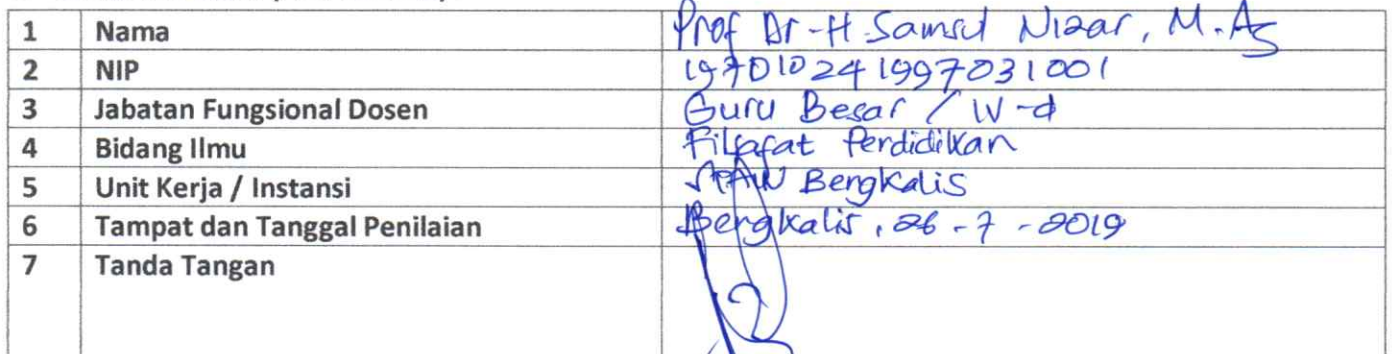 1 Nama Prof Dr-H. Samsul Nizar, M.Ag
2 NIP 197010241997031001
3 Jabatan Fungsional Dosen Guru Besar / IV-d
4 Bidang Ilmu Filsafat Perdidikan
5 Unit Kerja / Instansi STAIN Bengkalis
6 Tampat dan Tanggal Penilaian Bengkalis, 26-7-2019
7 Tanda Tangan